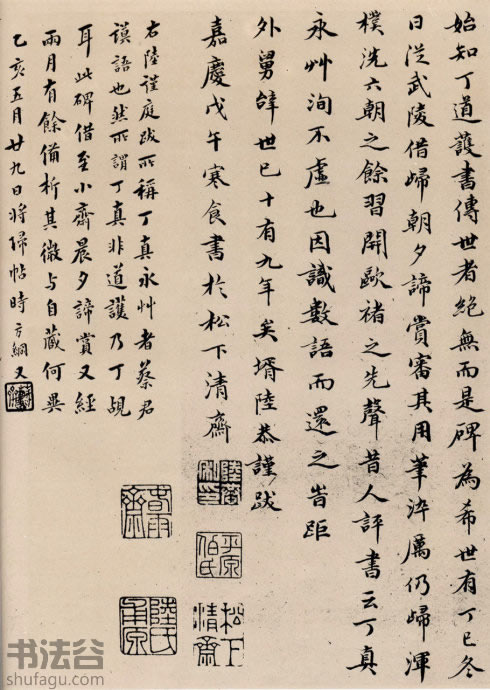 始知丁道護書傳世者絶無而是碑為希世有丁巳冬
日從武陵借歸朝夕諦賞審其用筆淬厲仍歸渾
樸洗六朝之餘習開歐褚之先聲昔人評書云丁真
永艸洵不虛也因識數語而還之昔距
外舅辭世已十有九年矣壻陸恭謹跋
嘉慶戊午寒食書於松下清齋
右陸謹庭跋所稱丁真永艸者蔡君
謨語也然所謂丁真非道護乃丁覘
耳此碑借至小齋晨夕諦賞又經
兩月有餘備析其微与自藏何異
乙亥五月廿九日將歸帖時方綱又
平原
伯氏
松下
清齋
陸氏
书法谷
shufagu.com